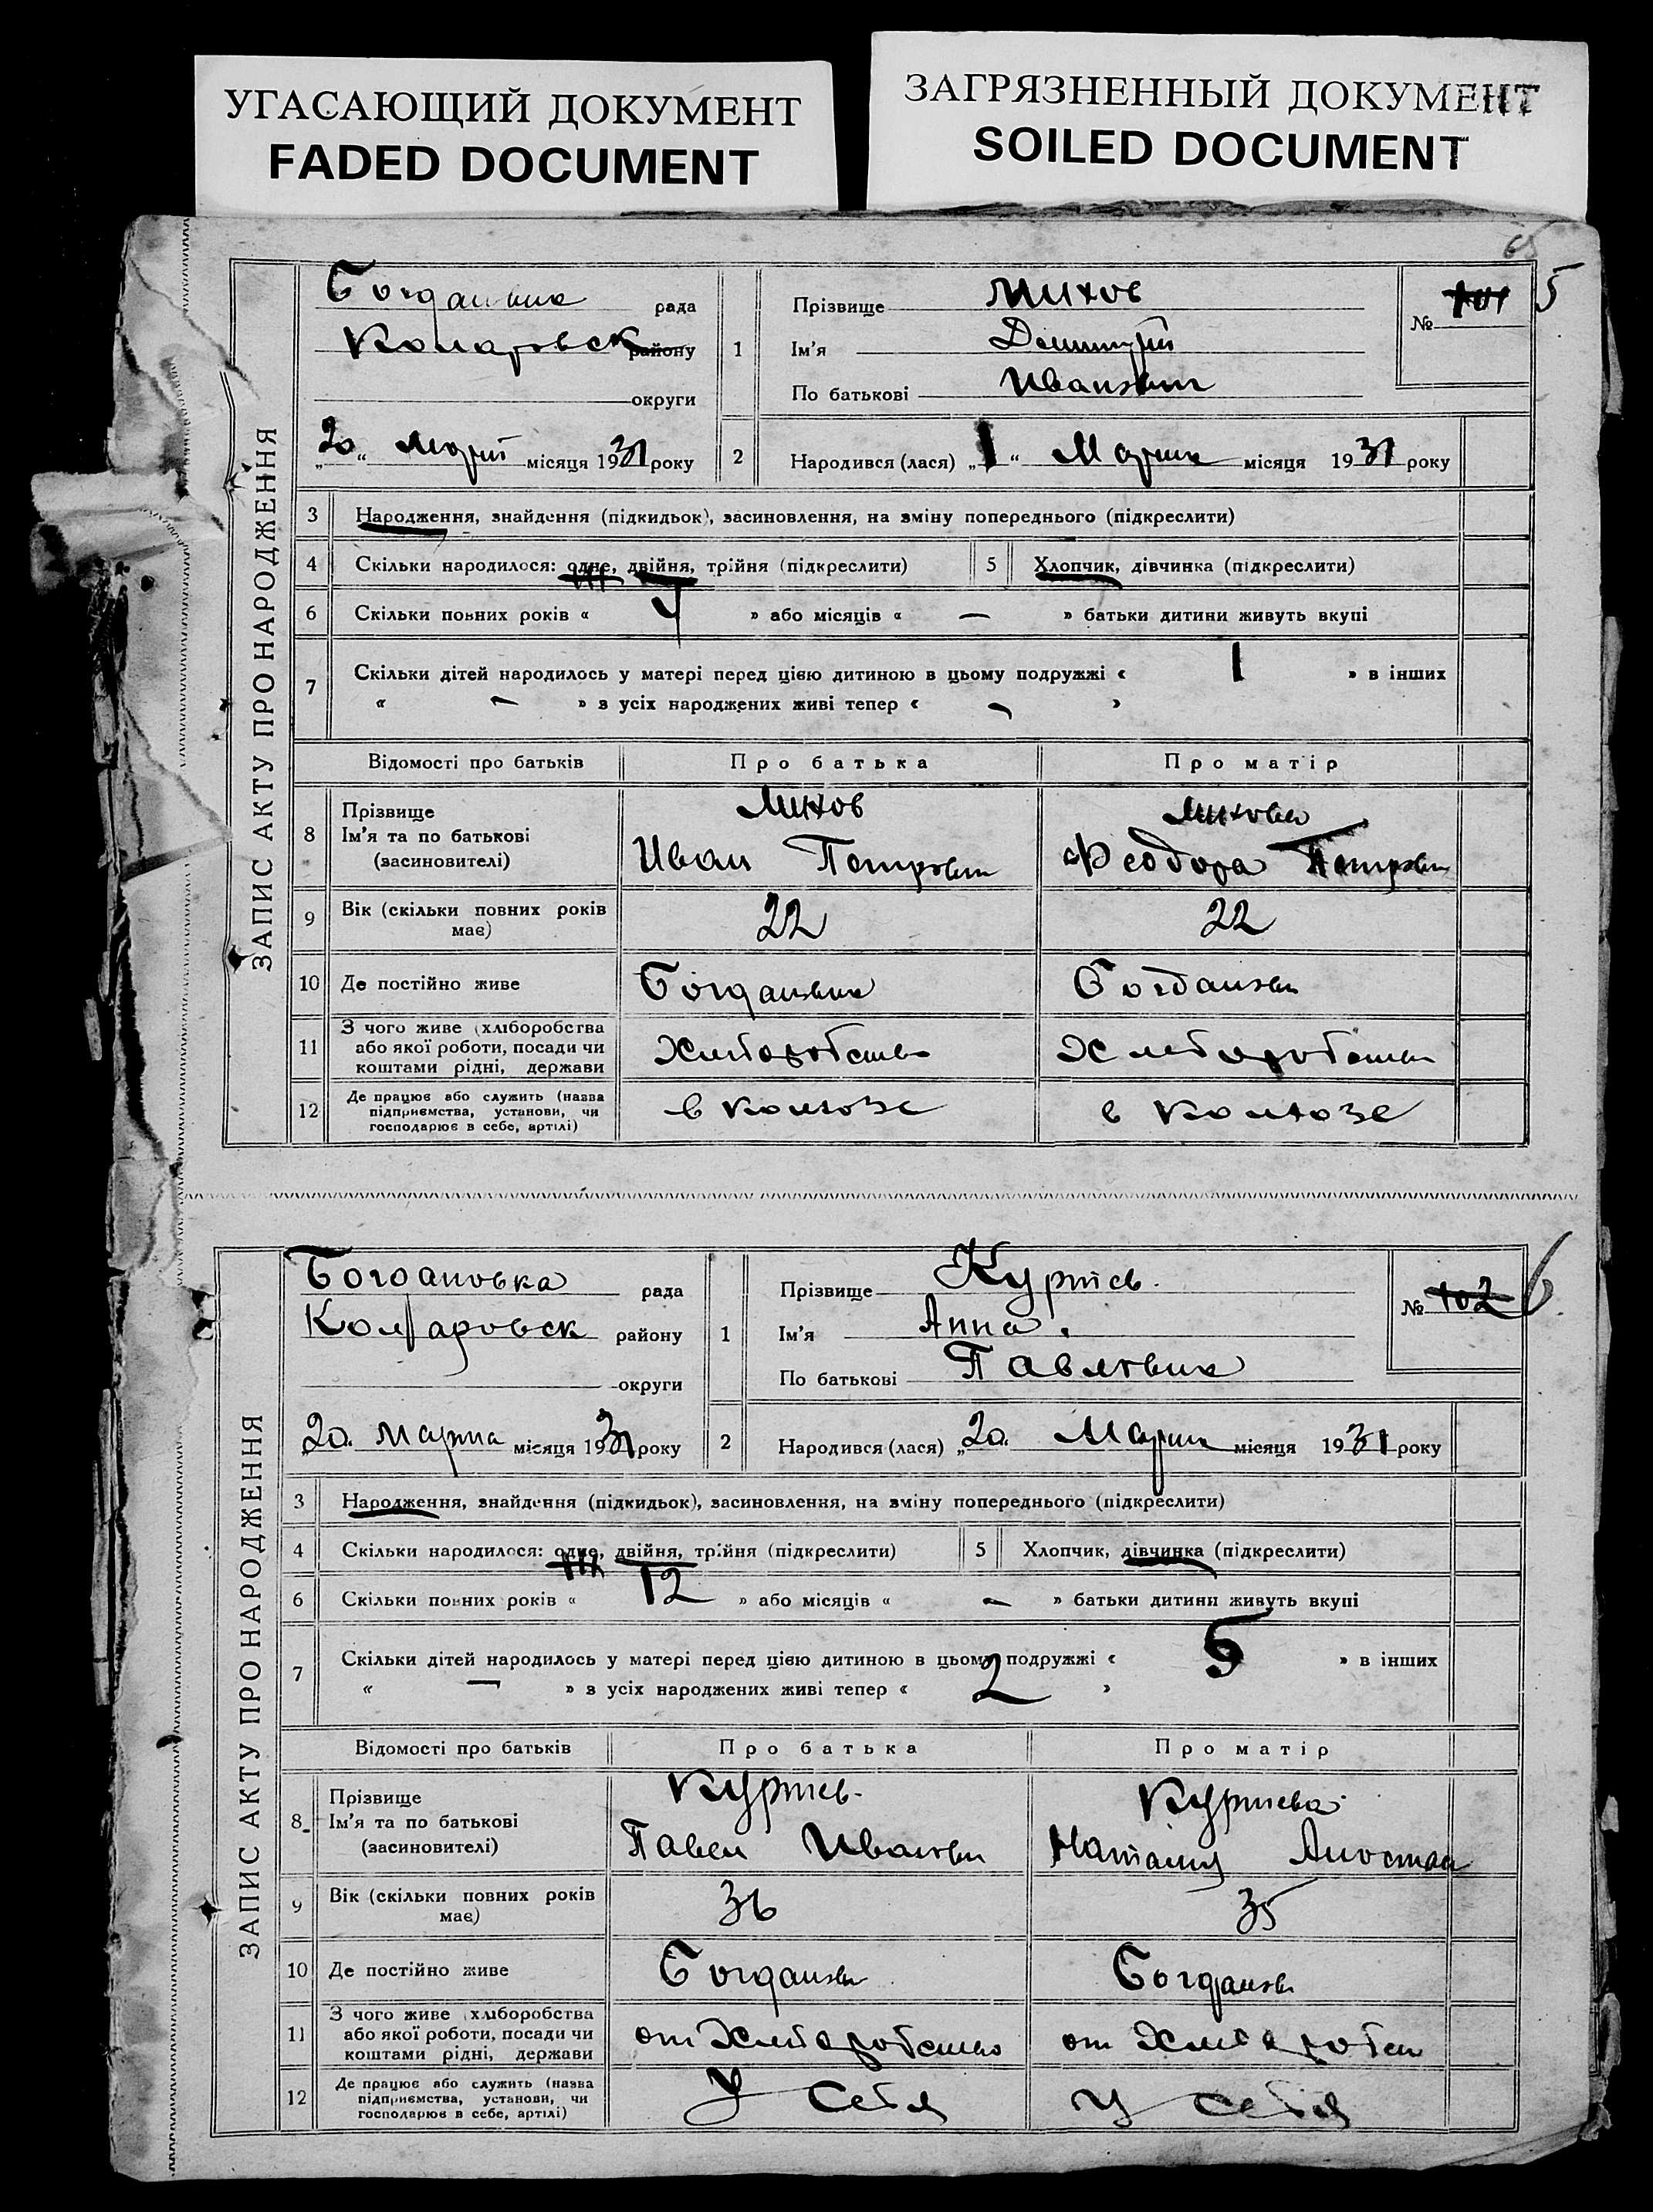 УГАСАЮЩИЙ ДОКУМЕНТ
FADED DOCUMENT
ЗАГРЯЗНЕННЫЙ ДОКУМЕНТ
SOILED DOCUMENT
65
5
ЗАПИС АКТУ ПРО НАРОДЖЕННЯ
рада
району
округи
„20“ март місяця 1931 року
1 Прізвище Михов
Ім'я Димитрий
По батькові Иванович
№ 101
2 Народився (лася) „1“ Марта місяця 1931 року
3 Народження, знайдення (підкидьок), засиновлення, на зміну попереднього (підкреслити)
4 Скільки народилося: одне, двійня, трійня (підкреслити) 5 Хлопчик, дівчинка (підкреслити)
6 Скільки повних років « » або місяців « — » батьки дитини живуть вкупі
7 Скільки дітей народилось у матері перед цією дитиною в цьому подружжі « 1 » в інших
« — » з усіх народжених живі тепер « — »
Відомості про батьків Про батька Про матір
8 Прізвище
Ім'я та по батькові
(засиновителі)
Михов
Иван Петрович
Михова
Феодора Петровн
9 Вік (скільки повних років
має)
22 22
10 Де постійно живе
11 З чого живе (хліборобства
або якої роботи, посади чи
коштами рідні, держави
12 Де працює або служить (назва
підприємства, установи, чи
господарює в себе, артілі)
в колхозе в колхозе
ЗАПИС АКТУ ПРО НАРОДЖЕННЯ
Богдановка рада
Коларовск району
округи
20 марта місяця 1931 року
1 Прізвище Куртев
Ім'я Анна
По батькові Павловна
№ 102 6
2 Народився (лася) „20 Марта місяця 1931 року
3 Народження, знайдення (підкидьок), засиновлення, на зміну попереднього (підкреслити)
4 Скільки народилося: одне, двійня, трійня (підкреслити) 5 Хлопчик, дівчинка (підкреслити)
6 Скільки повних років « 12 » або місяців « — » батьки дитини живуть вкупі
7 Скільки дітей народилось у матері перед цією дитиною в цьому подружжі « 5 » в інших
« — » з усіх народжених живі тепер « 2 »
Відомості про батьків Про батька Про матір
8 Прізвище
Ім'я та по батькові
(засиновителі)
Куртев
Павел Иванов
Куртева
Наталия
9 Вік (скільки повних років
має)
36 35
10 Де постійно живе
11 З чого живе (хліборобства
або якої роботи, посади чи
коштами рідні, держави
12 Де працює або служить (назва
підприємства, установи, чи
господарює в себе, артілі)
У себя У себя